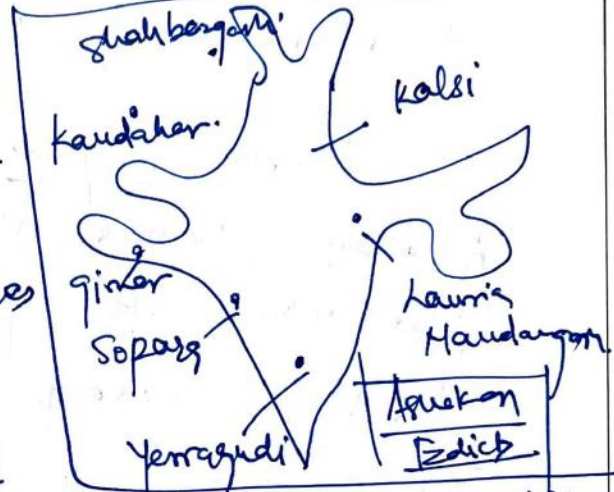 Shahbazgarhi
Kalsi
Kandahar
es
girnar
Sopara
Lauria
Nandangarh
Yerragudi
Asokan
Edict